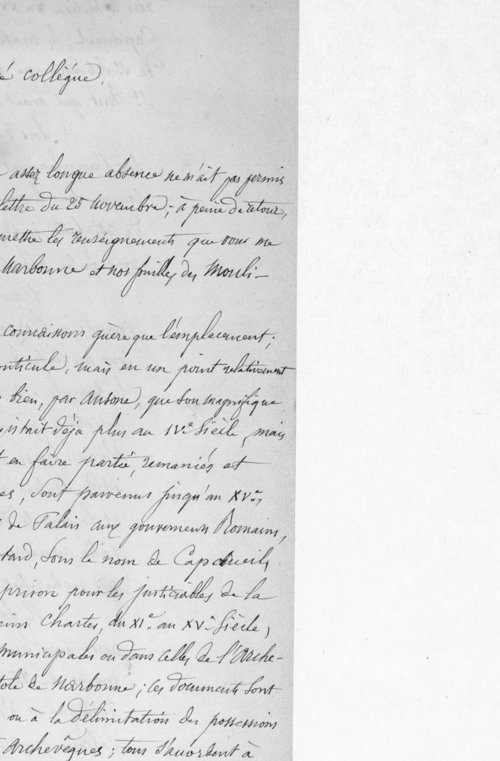 é collègue,
assez longue absence ne m'ait pas permis
lettre du 25 novembre ; à peine de retour,
mettre les renseignements que vous me
Narbonne et nos fouilles des Mouli-
connaissons guère que l'emplacement ;
onticule, mais en un point relativement
bien, par Ausone, que son magnifique
istait déja plus au IVe Siècle, mais
t en faire partie, remaniés et
es, sont parvenus jusqu'au XVe
de Palais aux gouverneurs Romains,
tard, sous le nom de Capdueil,
prison pour les justiciables de la
ains Chartes, du XIe au XVe Siècle,
municipales ou dans celles de l'Arche-
tole de Narbonne ; ces documents sont
ou à la délimitation des possessions
Archevêques ; tous s'accordent à